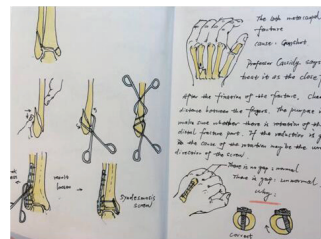 The 5th metacarpal
fracture
cause: Gunshot
Professor Cassidy says
treat it as the close
After the fixation of the fracture, Check
distance between the fingers. The purpose is
make sure whether there is rotation of the
distal fracture part. If the reduction is g
the cause of the rotation may be the
direction of the screw
There is no gap: normal
There is gap: unnormal
why:
correct
Syndesmosis
screw